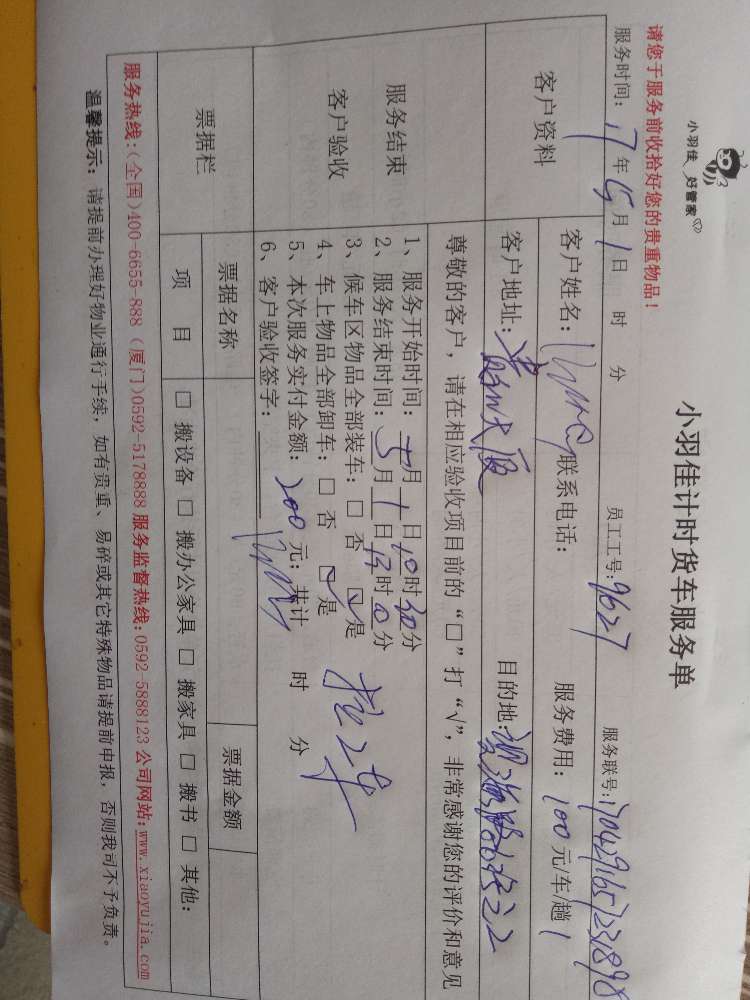 小羽佳 好管家
小羽佳计时货车服务单
请您于服务前收拾好您的贵重物品!
服务时间: 17年5月1日 时 分 员工工号: 9627 服务联号:
客户资料
客户姓名: 联系电话: 服务费用: 100元/车/趟
客户地址: 大厦 目的地:
服务结束
客户验收
尊敬的客户, 请在相应验收项目前的“□”打“√”, 非常感谢您的评价和意见
1、服务开始时间: 5月1日10时30分
2、服务结束时间: 5月1日13时0分
3、候车区物品全部装车: □ 否 ☑是
4、车上物品全部卸车: □ 否 ☑是
5、本次服务实付金额: 200元; 共计 时 分
6、客户验收签字:
票据栏
票据名称 票据金额
项 目 □ 搬设备 □ 搬办公家具 □ 搬家具 □ 搬书 □ 其他:
服务热线:(全国)400-6655-888 (厦门)0592-5178888 服务监督热线:0592-5888123 公司网站:www.xiaoyujia.com
温馨提示: 请提前办理好物业通行手续, 如有贵重、易碎或其它特殊物品请提前申报, 否则我司不予负责。